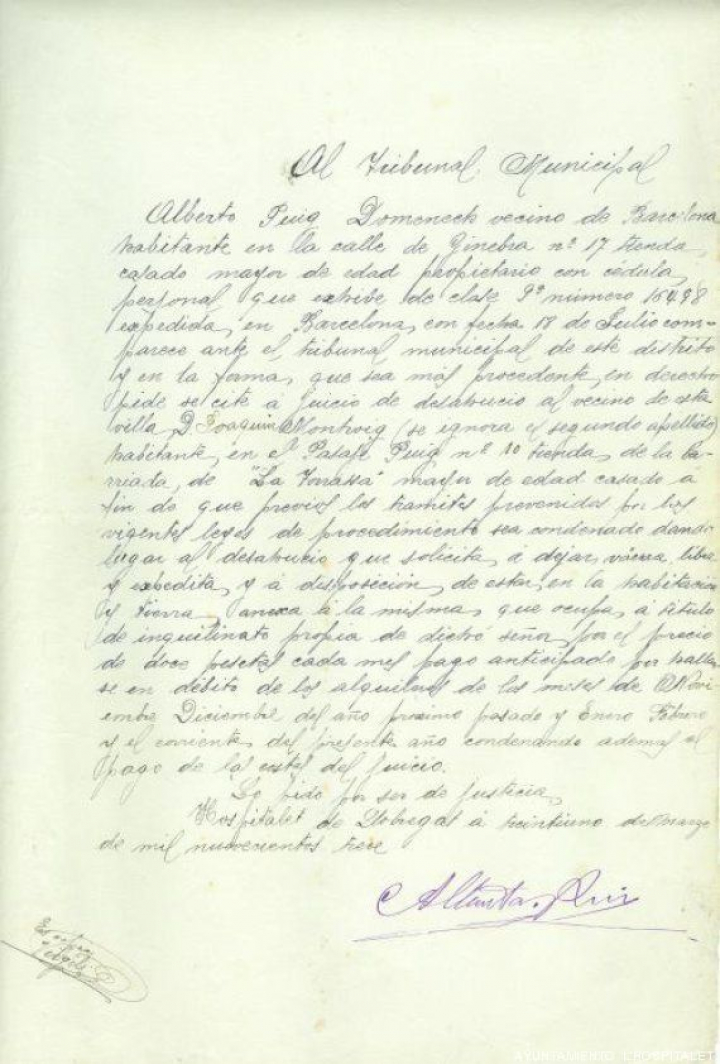 Al Tribunal Municipal
Alberto Puig Domenech vecino de Barcelona
habitante en la calle de Ginebra nº 17 tienda
casado mayor de edad propietario con cédula
personal que exhibe de clase 9ª número 16498
expedida en Barcelona con fecha 18 de Julio com-
parece ante el tribunal municipal de este distrito
y en la forma que sea más procedente en derecho
pide se cite á juicio de desahucio al vecino de esta
villa D. Joaquin Montroig (se ignora el segundo apellido)
habitante en el Pasaje Puig nº 10 tienda de la ba-
rriada de "La Torrassa" mayor de edad casado á
fin de que previos los tramites prevenidos por las
vigentes leyes de procedimiento sea condenado dando
lugar al desahucio que solicita á dejar vácua, libre
y expedita y á disposición de estar en la habitacion
y tierra anexa á la misma que ocupa á titulo
de inquilinato propia de dicho señor por el precio
de doce pesetas cada mes pago anticipado por halla
se en débito de los alquileres de los meses de Novi
embre Diciembre del año proximo pasado y Enero Febrero
y el corriente del presente año condenando ademas al
pago de las costas del juicio.
Lo pido por ser de justicia
Hospitalet de Llobregat á treintiuno de Marzo
de mil nuevecientos trece
Alberto Puig
AYUNTAMIENTO L'HOSPITALET